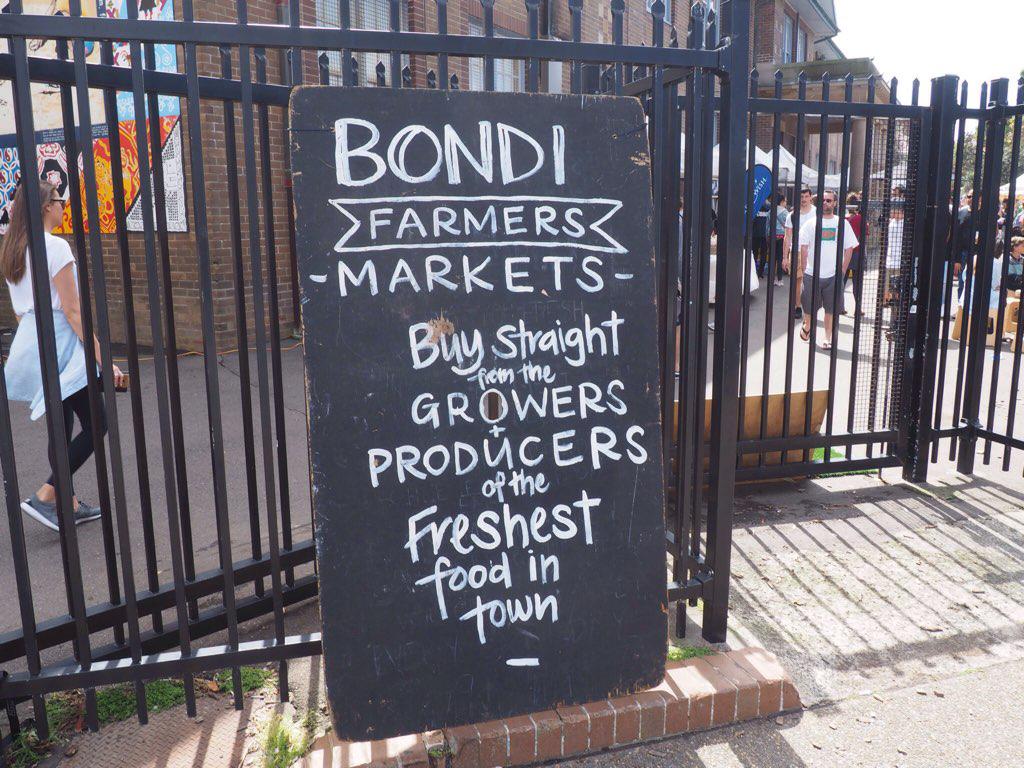 BONDI
FARMERS
-MARKETS-
Buy straight
from the
GROWERS
+
PRODUCERS
of the
Freshest
food in
town